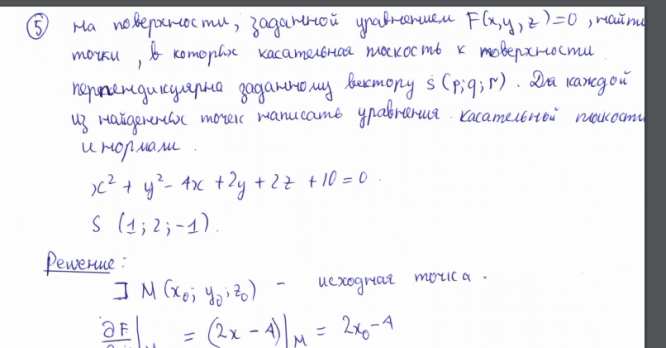 ⑤ на поверхности, заданной уравнением F(x,y,z)=0, найти
точки, в которых касательная плоскость к поверхности
перпендикулярна заданному вектору s (p;q;r). Для каждой
из найденных точек написать уравнения касательной плоскости
и нормали.
x² + y² - 4x + 2y + 2z + 10 = 0.
S (1; 2; -1).
Решение:
∃ M (x₀; y₀; z₀) - исходная точка.
∂F | = (2x - 4)|M = 2x₀ - 4